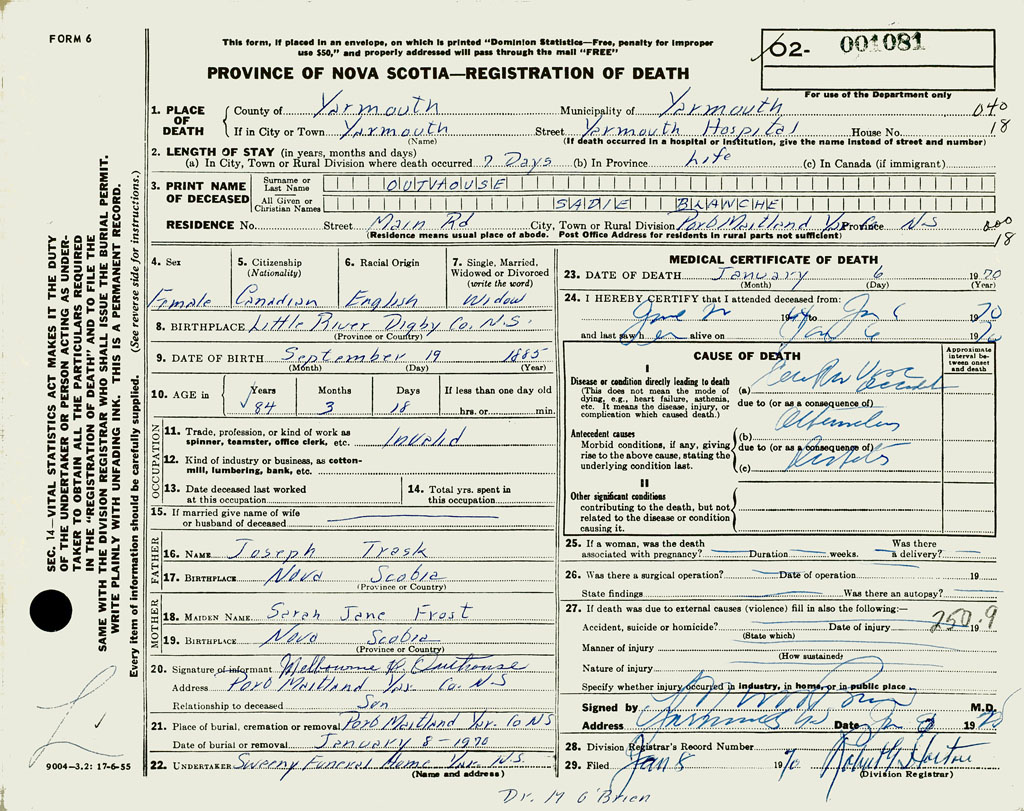 FORM 6
This form, if placed in an envelope, on which is printed "Dominion Statistics—Free, penalty for improper
use $50," and properly addressed will pass through the mail "FREE"
PROVINCE OF NOVA SCOTIA—REGISTRATION OF DEATH
02- 001081
For use of the Department only
SEC. 14—VITAL STATISTICS ACT MAKES IT THE DUTY
OF THE UNDERTAKER OR PERSON ACTING AS UNDER-
TAKER TO OBTAIN ALL THE PARTICULARS REQUIRED
IN THE "REGISTRATION OF DEATH" AND TO FILE THE
SAME WITH THE DIVISION REGISTRAR WHO SHALL ISSUE THE BURIAL PERMIT.
WRITE PLAINLY WITH UNFADING INK. THIS IS A PERMANENT RECORD.
Every item of information should be carefully supplied. (See reverse side for instructions.)
1. PLACE OF DEATH
County of Yarmouth Municipality of Yarmouth 040
If in City or Town Yarmouth Street Yarmouth Hospital House No. 18
(Name) (If death occurred in a hospital or institution, give the name instead of street and number)
2. LENGTH OF STAY (in years, months and days)
(a) In City, Town or Rural Division where death occurred 7 Days (b) In Province Life (c) In Canada (if immigrant)
3. PRINT NAME OF DECEASED
Surname or Last Name OUTHOUSE
All Given or Christian Names SADIE BLANCHE
RESIDENCE No. Street Main Rd City, Town or Rural Division Port Maitland Yar. Province N S
(Residence means usual place of abode. Post Office Address for residents in rural parts not sufficient) 18
4. Sex Female
5. Citizenship (Nationality) Canadian
6. Racial Origin English
7. Single, Married, Widowed or Divorced (write the word) Widow
8. BIRTHPLACE Little River Digby Co. N.S.
(Province or Country)
9. DATE OF BIRTH September 19 1885
(Month) (Day) (Year)
10. AGE in Years 84 Months 3 Days 18 If less than one day old hrs. or min.
OCCUPATION
11. Trade, profession or kind of work as spinner, teamster, office clerk, etc. Invalid
12. Kind of industry or business, as cotton-mill, lumbering, bank, etc.
13. Date deceased last worked at this occupation
14. Total yrs. spent in this occupation
15. If married give name of wife or husband of deceased
FATHER
16. NAME Joseph Trask
17. BIRTHPLACE Nova Scotia
(Province or Country)
MOTHER
18. MAIDEN NAME Sarah Jane Frost
19. BIRTHPLACE Nova Scotia
(Province or Country)
20. Signature of informant Melbourne Outhouse
Address Port Maitland Yar. Co. N.S
Relationship to deceased Son
21. Place of burial, cremation or removal Port Maitland Yar. Co N S
Date of burial or removal January 8 - 1970
22. UNDERTAKER Sweeny Funeral Home Yar. N.S.
(Name and address)
9004—3.2: 17-6-55
MEDICAL CERTIFICATE OF DEATH
23. DATE OF DEATH January 6 1970
(Month) (Day) (Year)
24. I HEREBY CERTIFY that I attended deceased from:
Jan 6 1970
and last saw her alive on Jan 6 1970
CAUSE OF DEATH
Approximate interval between onset and death
I
Disease or condition directly leading to death
(This does not mean the mode of dying, e.g., heart failure, asthenia, etc. It means the disease, injury, or complication which caused death.)
(a)
due to (or as a consequence of)
Antecedent causes
Morbid conditions, if any, giving rise to the above cause, stating the underlying condition last.
(b)
due to (or as a consequence of)
(c)
II
Other significant conditions
contributing to the death, but not related to the disease or condition causing it.
25. If a woman, was the death associated with pregnancy? Duration weeks. Was there a delivery?
26. Was there a surgical operation? Date of operation 19
State findings Was there an autopsy?
27. If death was due to external causes (violence) fill in also the following:—
Accident, suicide or homicide? Date of injury 19 250.9
(State which)
Manner of injury
(How sustained)
Nature of injury
Specify whether injury occurred in industry, in home, or in public place
Signed by M.D.
Address Yarmouth Date Jan 19
28. Division Registrar's Record Number
29. Filed Jan 8 1970 Robert G Horton
(Division Registrar)
Dr. M O'Brien